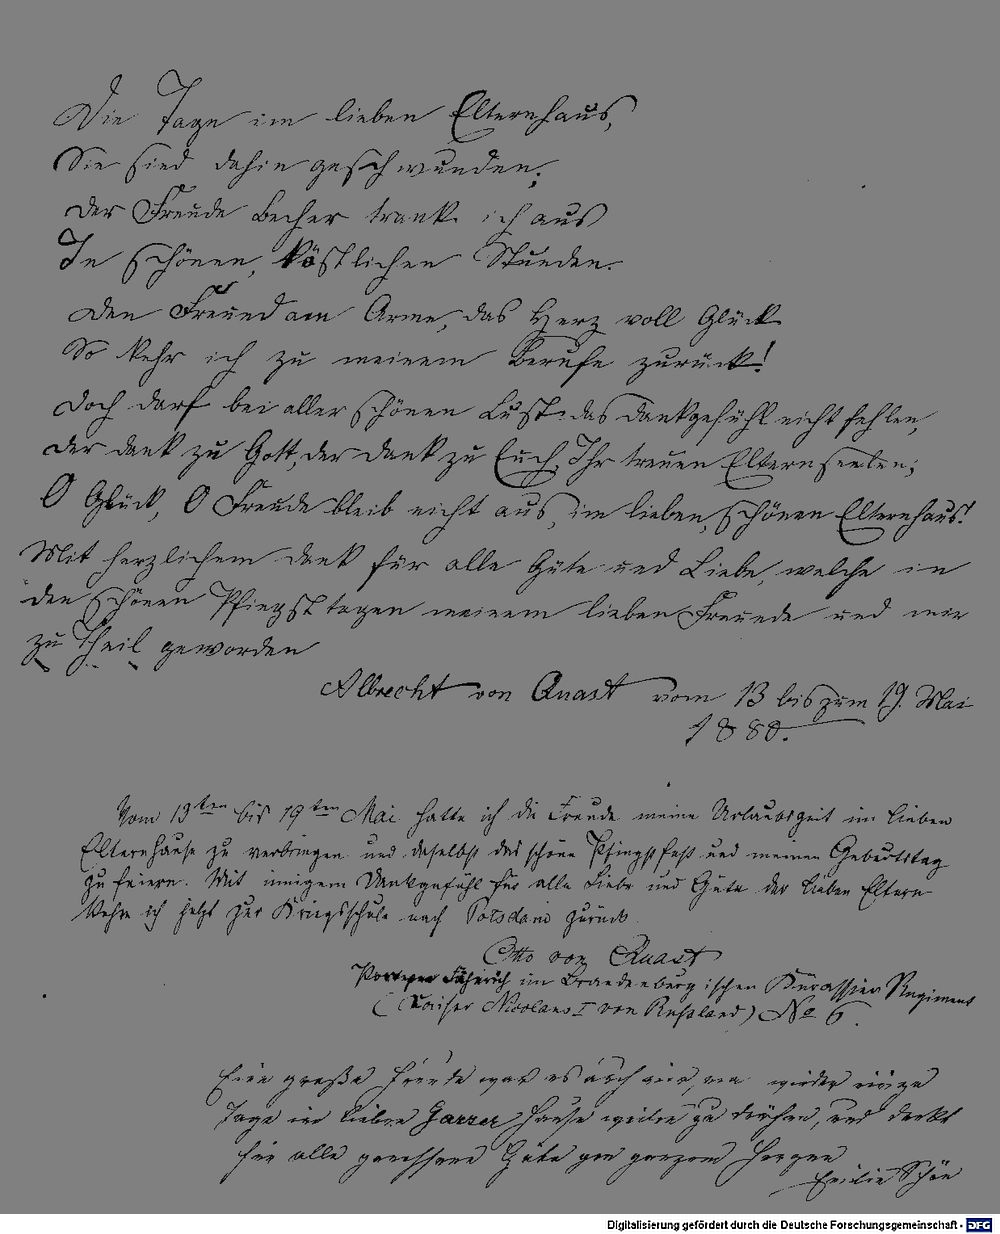 Die Tage im lieben Elternhaus,
Sie sind dahin geschwunden;
Der Freude Becher trank ich aus
In schönen, köstlichen Stunden.
Den Freund am Arme, das Herz voll Glück
So kehr ich zu meinem Berufe zurück!
Doch darf bei aller schönen Lust das Dankgefühl nicht fehlen,
Der Dank zu Gott, der Dank zu Euch, Ihr treuen Elternseelen;
O Glück, O Freude bleib nicht aus, im lieben, schönen Elternhaus!
Mit herzlichem Dank für alle Güte und Liebe, welche in
den schönen Pfingsttagen meinem lieben Freunde und mir
zu Theil geworden
Albrecht von Quast vom 13 bis zum 19. Mai
1880.
Vom 13ten bis 19ten Mai hatte ich die Freude meine Urlaubszeit im lieben
Elternhause zu verbringen und daselbst das schöne Pfingstfest und meinen Geburtstag
zu feiern. Mit innigem Dankgefühl für alle Liebe und Güte der lieben Eltern
kehre ich jetzt zur Kriegsschule nach Potsdam zurück.
Otto von Quast
Portepee Fähnrich im Brandenburgischen Kürassier Regiment
(Kaiser Nicolaus I von Russland) No 6.
Eine große Freude war es auch mir, wieder einige
Tage im lieben Garzer Hause weilen zu dürfen, und danke
für alle genossene Güte von ganzem Herzen
Schön